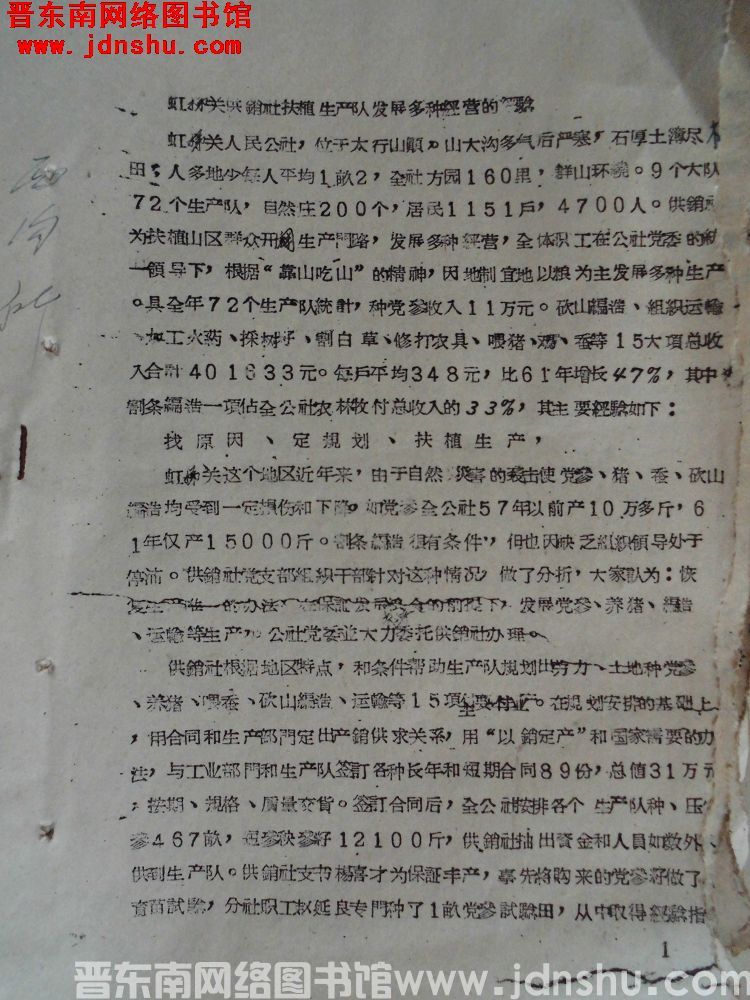 晋东南网络图书馆
www.jdnshu.com
虹梯关供銷社扶植生产队发展多种經营的經驗
虹梯关人民公社，位于太行山顛，山大沟多气后严寒，石厚土薄尽
田；人多地少每人平均1畝2，全社方园160里，群山环繞。9个大队
72个生产队，自然庄200个，居民1151戶，4700人。供銷
为扶植山区群众开闢生产門路，发展多种經营，全体职工在公社党委的
一領导下，根据“靠山吃山”的精神，因地制宜地以粮为主发展多种生产
。具全年72个生产队統計，种党参收入11万元。砍山編造、組織运輸
、加工火药、採树籽、割白草、修打农具、喂猪、鸡、蚕等15大項总收
入合計401633元。每戶平均348元，比61年增长47%，其中
割条編造一項佔全公社农林牧付总收入的33%，其主要經驗如下：
找原因、定規划、扶植生产，
虹梯关这个地区近年来，由于自然灾害的袭击使党参、猪、蚕、砍山
編造均受到一定損伤和下降。如党参全公社57年以前产10万多斤，6
1年仅产15000斤。割条編造很有条件，但也因缺乏組織領导处于
停滞。供銷社党支部組织干部針对这种情况，做了分折，大家認为：恢
的办法 在保証发展 的前提下，发展党参、养猪、編造
、运輸等生产，公社党委並大力委托供銷社办理。
供銷社根据地区特点，和条件帮助生产队規划出劳力、土地种党参
、养猪、喂蚕、砍山編造、运輸等15項主要付业。在規划安排的基础上
，用合同和生产部門定出产銷供求关系，用“以銷定产”和国家需要的办
法，与工业部門和生产队簽訂各种长年和短期合同89份，总值31万元
，按期、規格、质量交貨。簽訂合同后，全公社按排各个生产队种、压
参467畝，短参秧参籽12100斤，供銷社抽出資金和人員如数外
供到生产队。供銷社支书楊喜才为保証丰产，事先将购来的党参籽做了
育苗試驗，分社职工赵延良专門种了1畝党参試驗田，从中取得經驗指
1
晋东南网络图书馆www.jdnshu.com